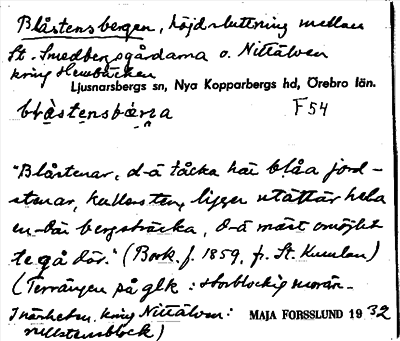 Blåstensbergen, höjdsluttning mellan
St. Smedbergsgårdarna o. Nittälven
kring Hembäcken
Ljusnarsbergs sn, Nya Kopparbergs hd, Örebro län.
blåstensbärja F54
"Blåstenar, d-ä tåcka här blåa jord-
stenar, kullersten, ligger utättär hela
en-där bergsträcka, d-ä mäst omöjlit
te gå där." (Bork. f. 1859, fr. St. Kumlan)
(Terrängen på glk : storblockig morän.
I närheten, kring Nittälven:
rullstensblock)
MAJA FORSSLUND 1932